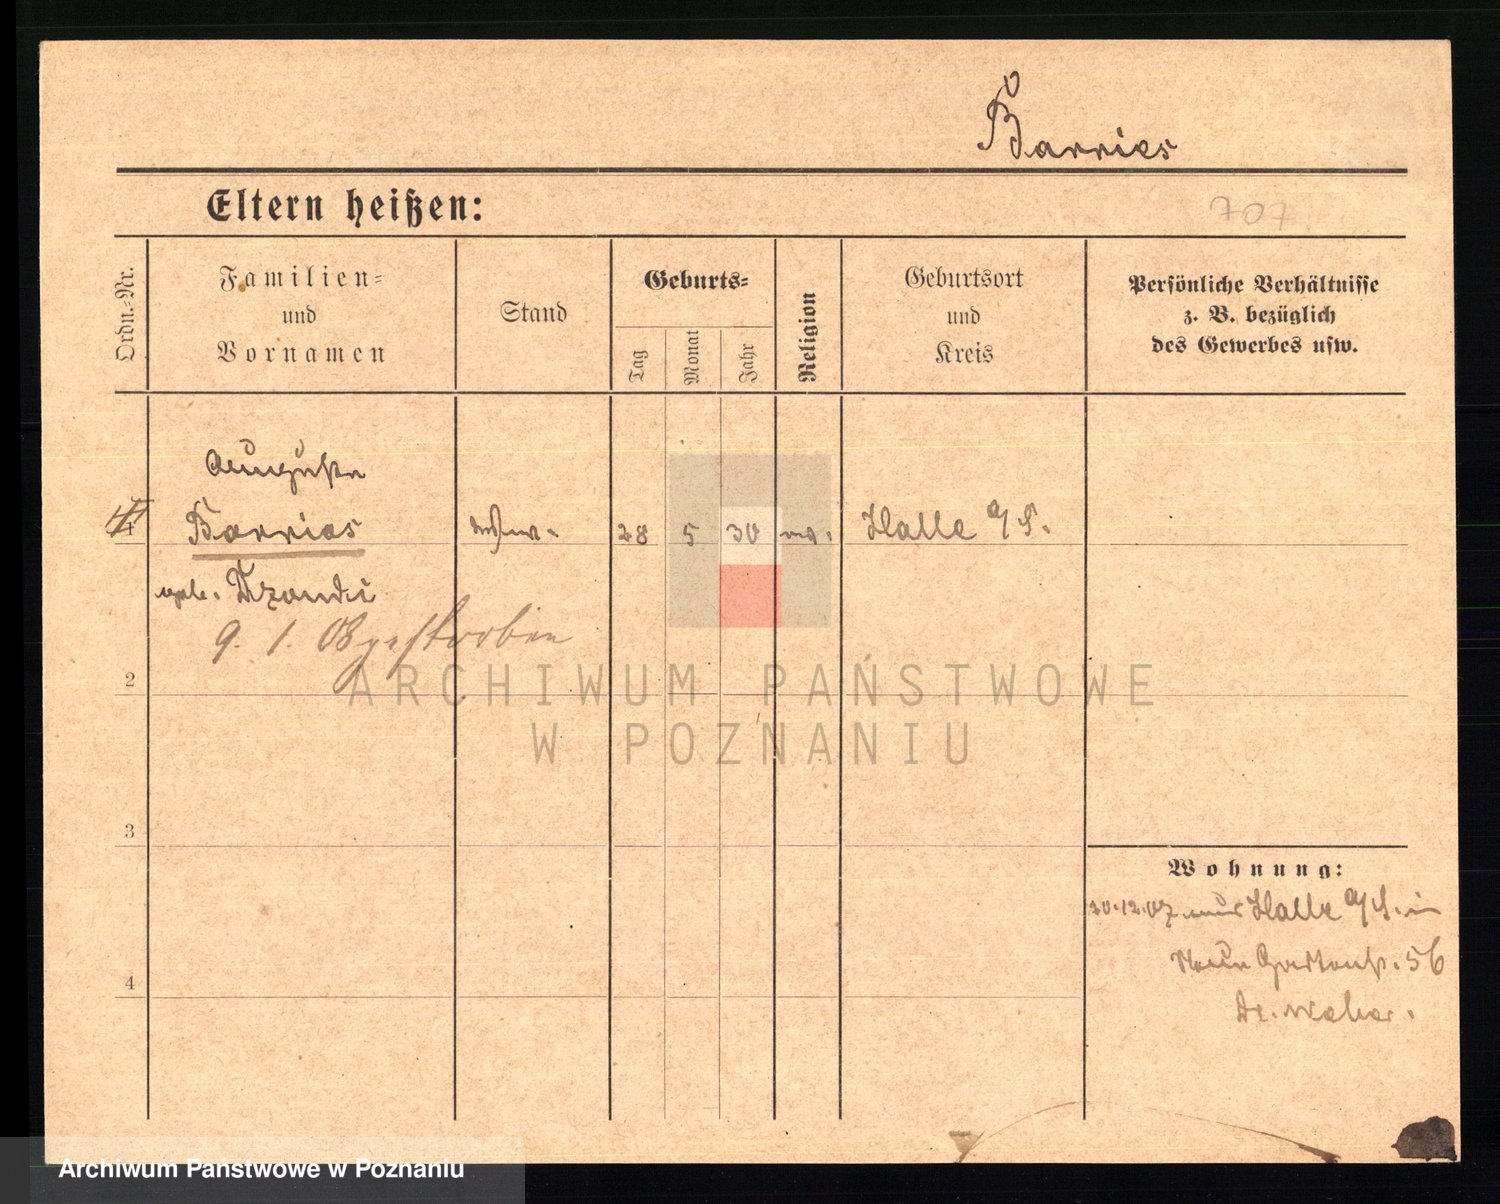 Barries
Eltern heißen:
707
Ordn.-Nr.
Familien-
und
Vornamen
Stand
Geburts-
Tag
Monat
Jahr
Religion
Geburtsort
und
Kreis
Persönliche Verhältnisse
z. B. bezüglich
des Gewerbes usw.
Auguste
1 Barries 28 5 30 Halle a/S.
geb.
9. 1. 08 gestorben
2
3
4
Wohnung:
20.12.07 Halle a/S. in
Neue Gartenstr. 56
Dr. Weber.
ARCHIWUM PAŃSTWOWE
W POZNANIU
Archiwum Państwowe w Poznaniu